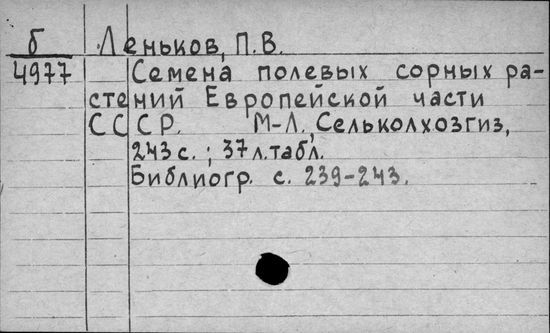 б Леньков, П.В.
4977 Семена полевых сорных ра-
стений Европейской части
СССР. М-Л., Сельколхозгиз,
243 с. ; 37 л.табл.
Библиогр. с. 239-243.